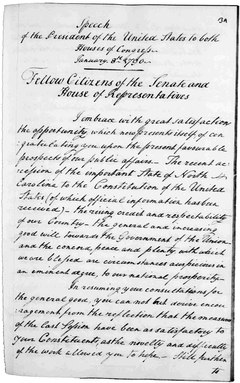 3A
Speech
of the President of the United States to both
Houses of Congress
January. 8th 1790.
Fellow Citizens of the Senate and
House of Representatives
I embrace with great satisfaction
the opportunity which now presents itself of con
gratulating you upon the present favourable
prospects of our public affairs— The recent ac
cession of the important State of North
Carolina to the Constitution of the United
States (of which official information has been
received)— the rising credit and respectability
of our Country— the general and increasing
good will towards the Government of the Union
and the concord, peace and plenty, with which
we are blessed are circumstances auspicious in
an eminent degree, to our national prosperity.
In resuming your consultations for
the general good, you cannot but derive encou
ragement from the reflection that the measures
of the last Session have been as satisfactory to
your Constituents, as the novelty and difficulty
of the work allowed you to hope. Still further
to